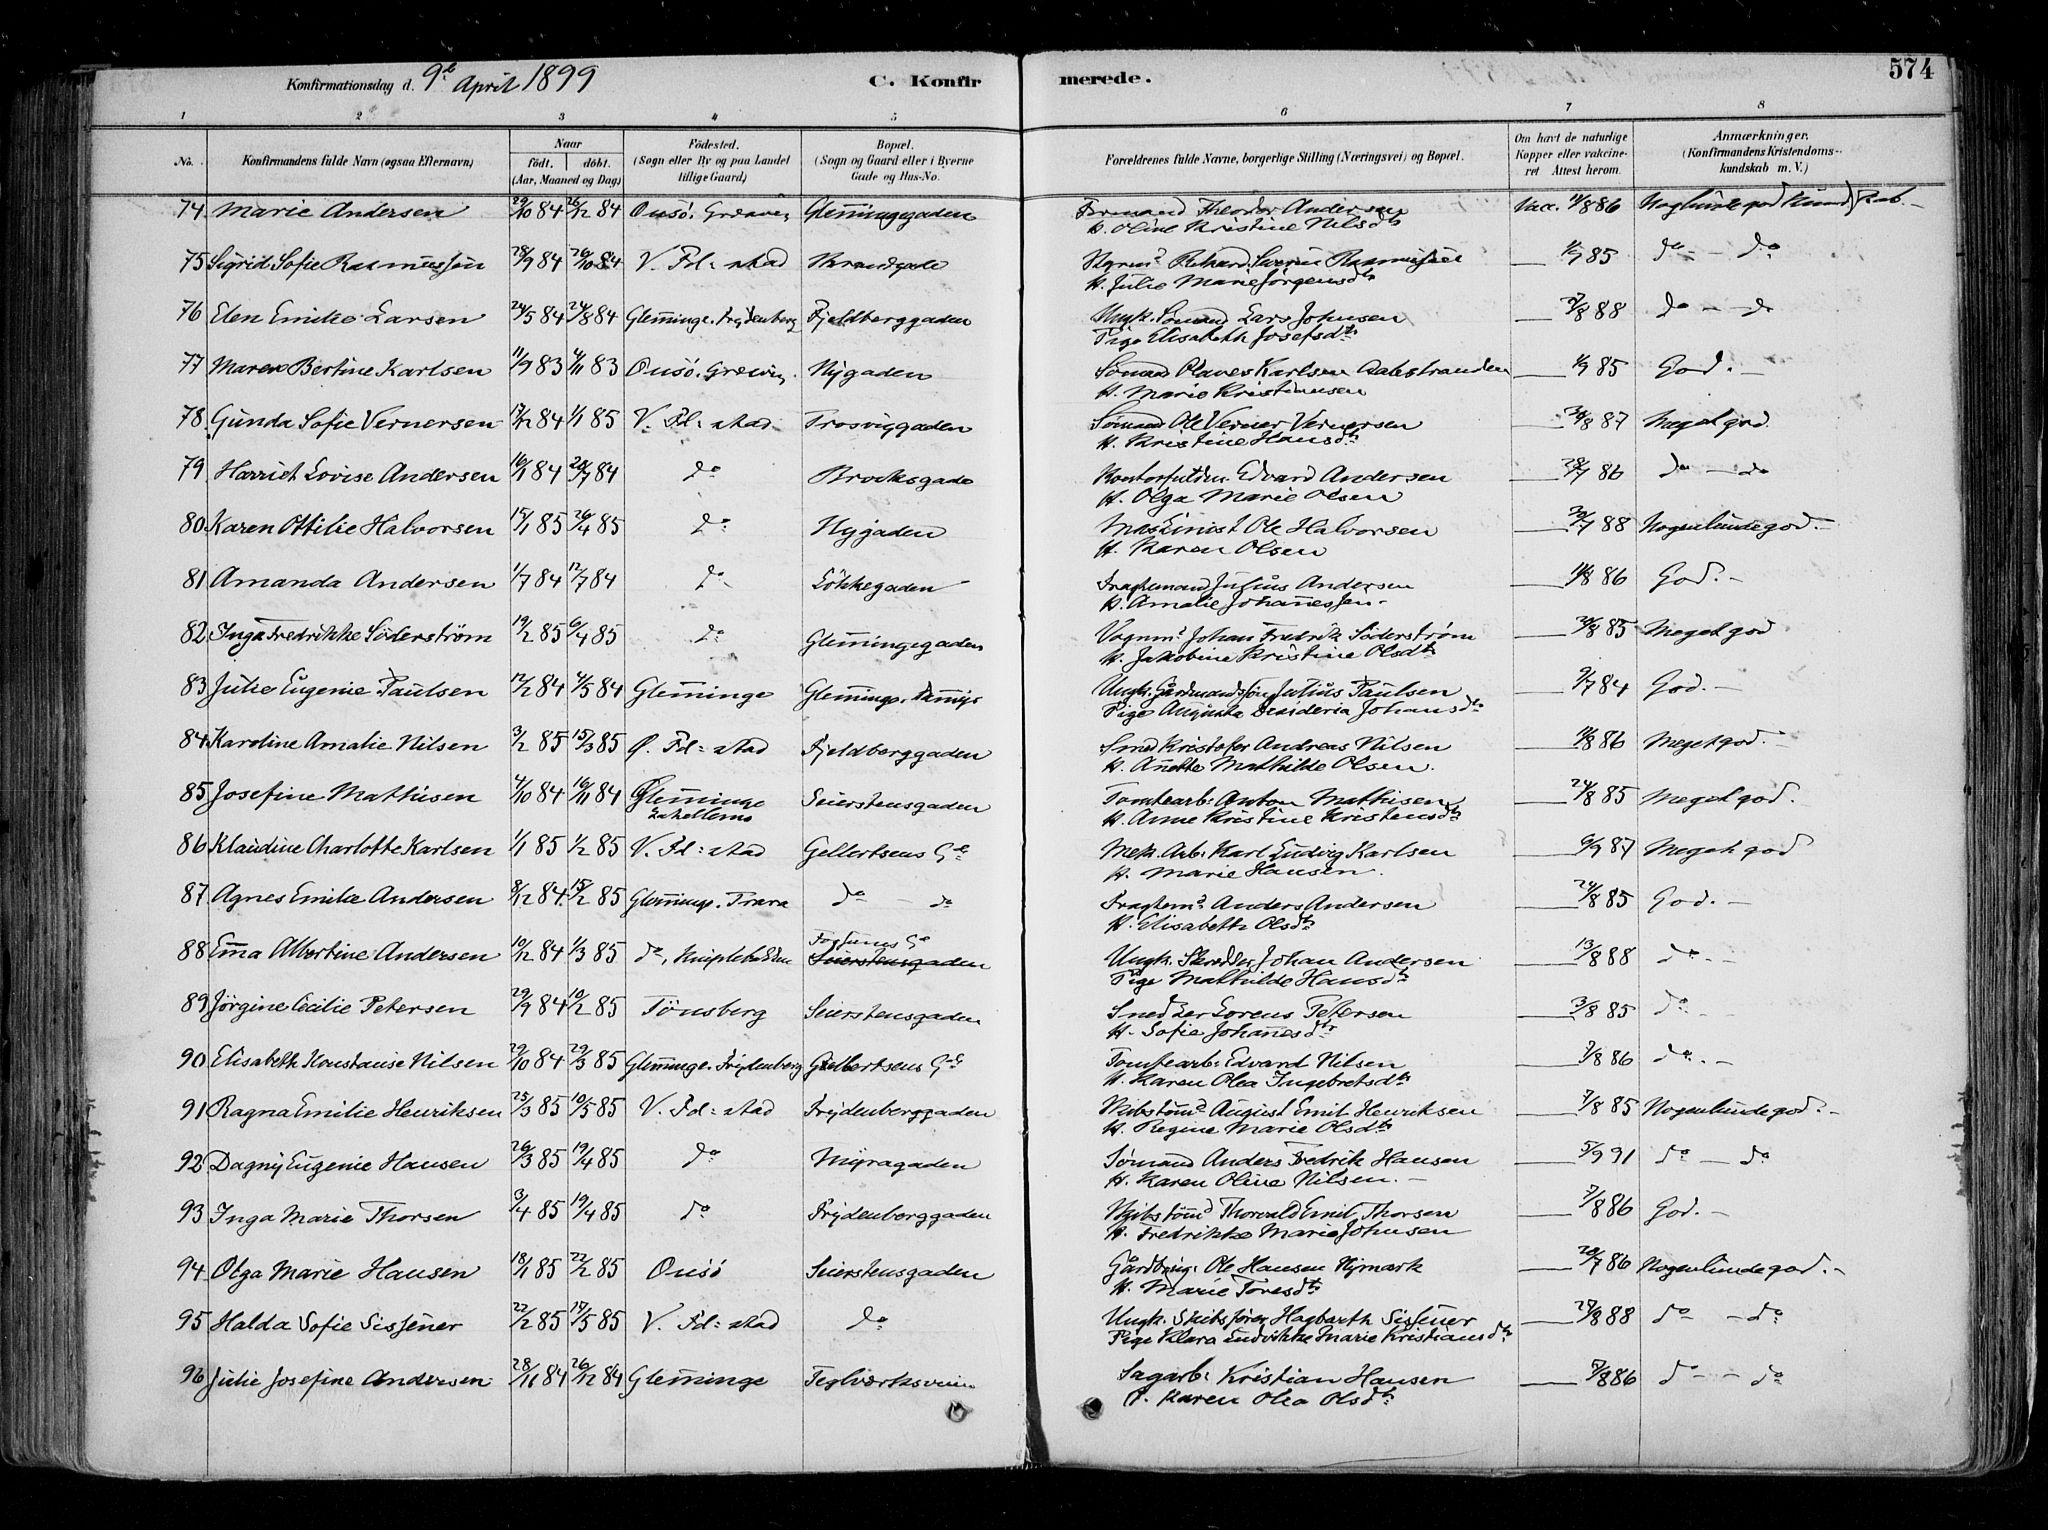 Konfirmationsdag d. 9de April 1899 C. Konfirmerede. 574
1 2 3 4 5 6 7 8
No. Konfirmandens fulde Navn (ogsaa Efternavn) Naar født. døbt. (Aar, Maaned og Dag) Fødested. (Sogn eller By og paa Landet tillige Gaard) Bopæl. (Sogn og Gaard eller i Byerne Gade og Hus-No. Forældrenes fulde Navne, borgerlige Stilling (Næringsvei) og Bopæl. Om havt de naturlige Kopper eller vakcineret Attest herom. Anmærkninger. (Konfirmandens Kristendomskundskab m. V.)
74 Marie Andersen 29/10 84 26/12 84 Onsø. Glemmingegaden Theodor Andersen Vacc. 11/8 86
H. Oline Kristine Nilsdtr
75 Sigrid Sofie Rasmussen 28/9 84 26/10 84 V. Fd=stad Rasmussen — 1/9 85 do — do
H. Julie Marie Jørgensdtr
76 Elen Emilie Larsen 24/5 84 24/8 84 Glemminge. Frydenberg Fjeldberggaden Ungk. Sømand Lars Johnsen — 27/8 88 do — do
Pige Elisabeth Josefsdtr
77 Maren Bertine Karlsen 11/9 83 4/11 83 Onsø. Nygaden Sømand Olaves Karlsen — 1/9 85 God. —
H. Marie Kristensen
78 Gunda Sofie Vernersen 17/12 84 1/1 85 V. Fd=stad Trosviggaden Sømand Ole Verner Vernersen — 30/8 87 Meget god
H. Kristine Hansdtr
79 Harriet Lovise Andersen 16/1 84 20/7 84 do Brochsgade Edvard Andersen — 28/7 86 do — do
H. Olga Marie Olsen
80 Karen Ottilie Halvorsen 15/1 85 26/4 85 do Nygaden Maskinist Ole Halvorsen — 30/7 88 Nogenlunde god. —
H. Karen Olsen
81 Amanda Andersen 1/7 84 12/7 84 do Løkkegaden Fragtemand Julius Andersen — 11/8 86 God. —
H. Amalie Johannessen. —
82 Inga Fredrikke Söderström 19/2 85 6/4 85 do Glemmingegaden Vognmd Johan Fredrik Söderström — 30/8 85 Meget god
H. Jakobine Kristine Olsdtr
83 Julie Eugenie Paulsen 12/2 84 4/5 84 Glemminge Glemminge. Ungk. Gårdmandssøn Julius Paulsen — 9/7 84 God. —
Pige Augusta Desideria Johansdtr
84 Karoline Amalie Nilsen 3/2 85 15/3 85 Ø. Fd=stad Fjeldberggaden Smed Kristofer Andreas Nilsen — 11/8 86 Meget god. —
H. Anette Mathilde Olsen.
85 Josefine Mathisen 4/10 84 16/11 84 Glemminge Seierstensgaden Tomtearb: Anton Mathisen — 24/8 85 Meget god.
H. Anne Kristine Kristensdtr
86 Klaudine Charlotte Karlsen 1/1 85 1/2 85 V. Fd=stad Gellertsens Gde Mek. Arb: Karl Ludvig Karlsen — 6/9 87 Meget god
H. Marie Hansen.
87 Agnes Emilie Andersen 8/12 84 15/2 85 Glemminge. Trara do — do Fragtemd Anders Andersen — 24/8 85 God. —
H. Elisabeth Olsdtr
88 Emma Albertine Andersen 10/12 84 1/3 85 do, Seierstensgaden Ungk. Skredder Johan Andersen — 13/8 88 do —
Pige Mathilde Hansdtr
89 Jørgine Cecilie Petersen 29/9 84 10/2 85 Tönsberg Seierstensgaden Snedker Lorens Petersen — 3/8 85 do —
H. Sofie Johannesdtr
90 Elisabeth Konstanse Nilsen 29/10 84 29/3 85 Glemminge. Frydenberg Gellertsens Gde Tomtearb: Edvard Nilsen — 7/8 86 do —
H. Karen Olea Ingebretsdtr
91 Ragna Emilie Henriksen 25/3 85 10/5 85 V. Fd=stad Frydenberggaden Skibstømd August Emil Henriksen — 7/8 85 Nogenlunde god. —
H. Regine Marie Olsdtr
92 Dagny Eugenie Hansen 26/3 85 19/4 85 do Myragaden Sømand Anders Fredrik Hansen — 5/9 91 do — do
H. Karen Oline Nilsen. —
93 Inga Marie Thorsen 3/4 85 19/4 85 do Frydenberggaden Skibstømd Thorvald Emil Thorsen — 7/8 86 God. —
H. Fredrikke Marie Johnsen
94 Olga Marie Hansen 18/1 85 22/2 85 Onsö Seierstensgaden Gårdbrug: Ole Hansen Nymark — 20/7 86 Nogenlunde god. —
H. Marie Toresdtr
95 Halda Sofie Sissener 22/2 85 17/5 85 V. Fd=stad do Ungk. Skibsfører Hagbarth Sissener — 27/8 88 do — do
Pige Klara Ludvikke Marie Kristiansdtr
96 Julie Josefine Andersen 28/11 84 26/12 84 Glemminge Teglværksveien Sagarb: Kristian Hansen — 7/8 86 do — do
Karen Olea Olsdtr